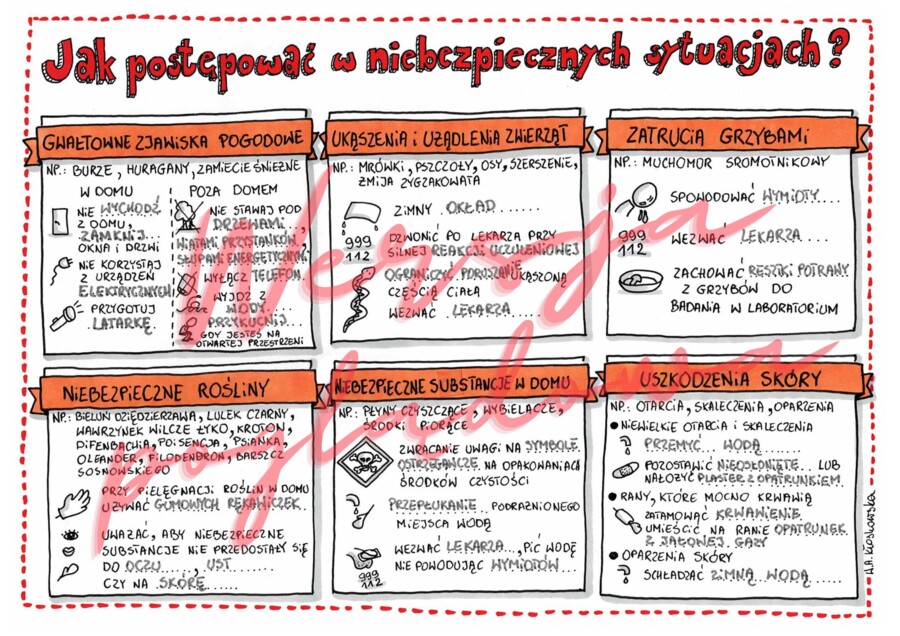 Jak postępować w niebezpiecznych sytuacjach?
GWAŁTOWNE ZJAWISKA POGODOWE
NP.: BURZE, HURAGANY, ZAMIECIE ŚNIEŻNE
W DOMU
NIE WYCHODŹ
Z DOMU,
ZAMKNIJ...
OKNA I DRZWI
NIE KORZYSTAJ
Z URZĄDZEŃ
ELEKTRYCZNYCH
PRZYGOTUJ
LATARKĘ.
POZA DOMEM
NIE STAWAJ POD
DRZEWAMI...,
WIATAMI PRZYSTANKÓW,
SŁUPAMI ENERGETYCZNYMI
WYŁĄCZ TELEFON.
WYJDŹ Z
WODY....
PRZYKUCNIJ...
GDY JESTEŚ NA
OTWARTEJ PRZESTRZENI
UKĄSZENIA I UŻĄDLENIA ZWIERZĄT
NP.: MRÓWKI, PSZCZOŁY, OSY, SZERSZENIE,
ŻMIJA ZYGZAKOWATA
ZIMNY OKŁAD......
999
112
DZWONIĆ PO LEKARZA PRZY
SILNEJ REAKCJI UCZULENIOWEJ
OGRANICZYĆ PORUSZANIE UKĄSZONĄ
CZĘŚCIĄ CIAŁA
WEZWAĆ LEKARZA....
ZATRUCIA GRZYBAMI
NP.: MUCHOMOR SROMOTNIKOWY
SPOWODOWAĆ WYMIOTY....
999
112
WEZWAĆ LEKARZA....
ZACHOWAĆ RESZTKI POTRAWY
Z GRZYBÓW DO
BADANIA W LABORATORIUM
NIEBEZPIECZNE ROŚLINY
NP.: BIELUŃ DZIĘDZIERZAWA, LULEK CZARNY,
WAWRZYNEK WILCZE ŁYKO, KROTON,
DIFENBACHIA, POISENCJA, PSIANKA,
OLEANDER, FILODENDRON, BARSZCZ
SOSNOWSKIEGO
PRZY PIELĘGNACJI ROŚLIN W DOMU
UŻYWAĆ GUMOWYCH RĘKAWICZEK
UWAŻAĆ, ABY NIEBEZPIECZNE
SUBSTANCJE NIE PRZEDOSTAŁY SIĘ
DO OCZU...., UST.....
CZY NA SKÓRĘ....
NIEBEZPIECZNE SUBSTANCJE W DOMU
NP.: PŁYNY CZYSZCZĄCE, WYBIELACZE,
ŚRODKI PIORĄCE
ZWRACANIE UWAGI NA SYMBOLE
OSTRZEGAWCZE NA OPAKOWANIACH
ŚRODKÓW CZYSTOŚCI
PRZEPŁUKANIE PODRAŻNIONEGO
MIEJSCA WODĄ
999
112
WEZWAĆ LEKARZA..., PIĆ WODĘ
NIE POWODUJĄC WYMIOTÓW...
USZKODZENIA SKÓRY
NP.: OTARCIA, SKALECZENIA, OPARZENIA
• NIEWIELKIE OTARCIA I SKALECZENIA
PRZEMYĆ WODĄ
POZOSTAWIĆ NIEOSŁONIĘTE... LUB
NAŁOŻYĆ PLASTER Z OPATRUNKIEM
• RANY, KTÓRE MOCNO KRWAWIĄ
ZATAMOWAĆ KRWAWIENIE
UMIEŚCIĆ NA RANIE OPATRUNEK
Z JAŁOWEJ GAZY
• OPARZENIA SKÓRY
SCHŁADZAĆ ZIMNĄ WODĄ.....
Wersja
poglądowa